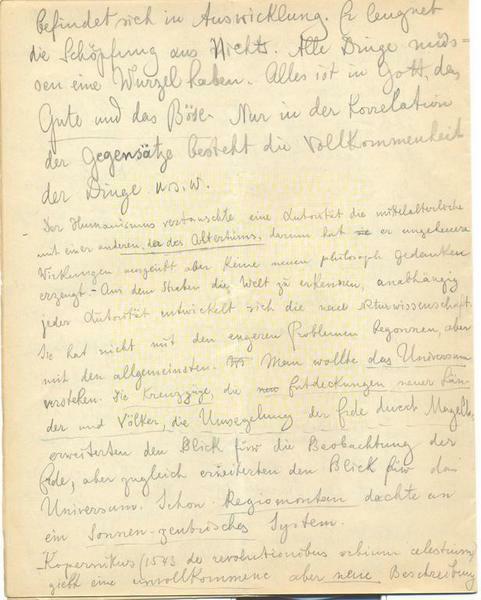 befindet sich in Auswicklung. Er leugnet
die Schöpfung aus Nichts. Alle Dinge müs=
sen eine Wurzel haben. Alles ist in Gott, das
Gute und das Böse. Nur in der Korrelation
der Gegensätze besteht die Vollkommenheit
der Dinge u.s.w.
- Der Humanismus vertauschte eine Autorität die mittelalterliche
mit einer anderen, der des Altertums, darum hat er ungeheure
Wirkungen ausgeübt aber keine neuen philosoph Gedanken
erzeugt - Aus dem Streben die Welt zu erkennen, unabhängig
jeder Autorität entwickelt sich die neue Naturwissenschaft.
Sie hat nicht mit den engeren Problemen begonnen, aber
mit den allgemeinsten. Man wollte das Universum
verstehen. Die Kreuzzüge, die Entdeckungen neuer Län-
der und Völker, die Umsegelung der Erde durch Magella
erweiterten den Blick für die Beobachtung der
Erde, aber zugleich erweiterten den Blick für das
Universum. Schon Regiomontan dachte an
ein Sonnen-zentrisches System.
Kopernikus (1543 de revolutionibus orbium celestium)
giebt eine unvollkommene aber neue Beschreibung